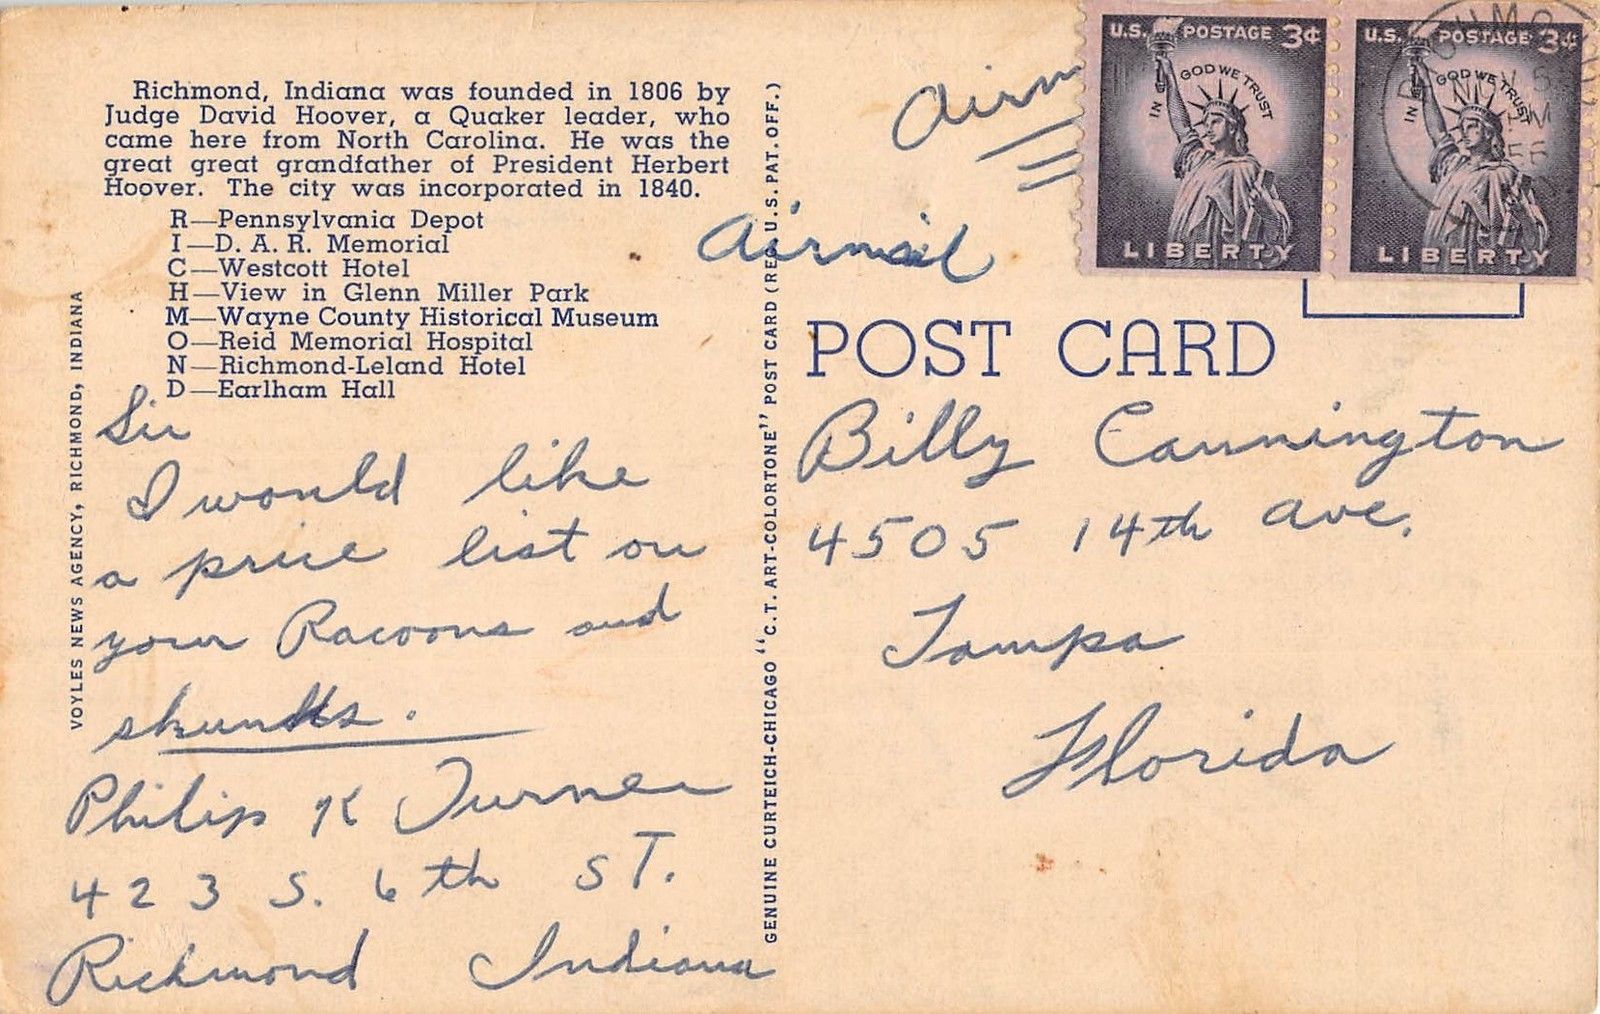 Richmond, Indiana was founded in 1806 by
Judge David Hoover, a Quaker leader, who
came here from North Carolina. He was the
great great grandfather of President Herbert
Hoover. The city was incorporated in 1840.
R—Pennsylvania Depot
I—D. A. R. Memorial
C—Westcott Hotel
H—View in Glenn Miller Park
M—Wayne County Historical Museum
O—Reid Memorial Hospital
N—Richmond-Leland Hotel
D—Earlham Hall
VOYLES NEWS AGENCY, RICHMOND, INDIANA
Sir
I would like
a price list on
your Racoons and
skunks.
Philip K Turner
423 S. 6th ST.
Richmond Indiana
GENUINE CURTEICH-CHICAGO "C.T. ART-COLORTONE" POST CARD (REG. U.S. PAT. OFF.)
Airm
Airmail
U.S. POSTAGE 3¢
IN GOD WE TRUST
LIBERTY
U.S. POSTAGE 3¢
IN GOD WE TRUST
LIBERTY
POST CARD
Billy Cannington
4505 14th ave.
Tampa
Florida